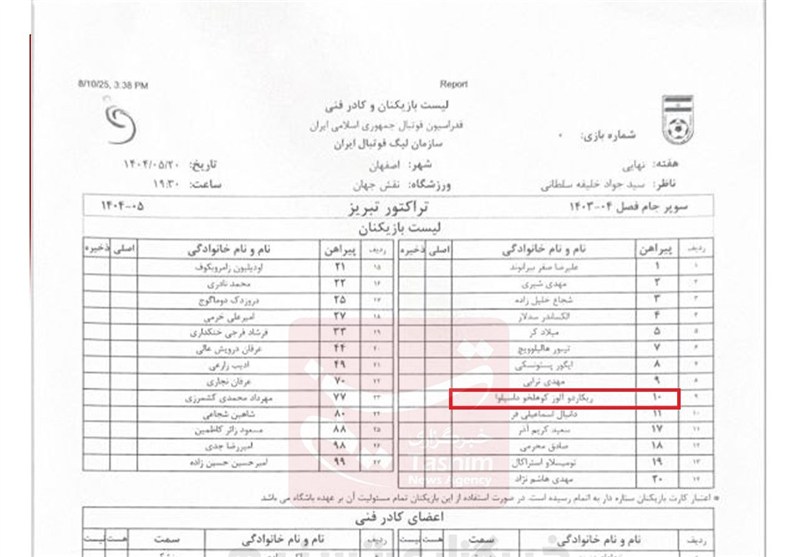 8/10/25, 3:38 PM
Report
لیست بازیکنان و کادر فنی
فدراسیون فوتبال جمهوری اسلامی ایران
سازمان لیگ فوتبال ایران
شماره بازی: ۰
هفته: نهایی
شهر: اصفهان
تاریخ: ۱۴۰۴/۰۵/۲۰
ناظر: سید جواد خلیفه سلطانی
ورزشگاه: نقش جهان
ساعت: ۱۹:۳۰
سوپر جام فصل ۰۴-۱۴۰۳
تراکتور تبریز
۱۴۰۴-۰۵
لیست بازیکنان
ردیف پیراهن نام و نام خانوادگی اصلی ذخیره
۱ ۱ علیرضا صفر بیرانوند
۲ ۲ مهدی شیری
۳ ۳ شجاع خلیل زاده
۴ ۴ الکساندر سدلار
۵ ۵ میلاد کر
۶ ۷ تیبور هالیلوویچ
۷ ۸ ایگور پستونسکی
۸ ۹ مهدی ترابی
۹ ۱۰ ریکاردو الور کوهلخو داسیلوا
۱۰ ۱۱ دانیال اسماعیلی فر
۱۱ ۱۷ سعید کریم آذر
۱۲ ۱۸ صادق محرمی
۱۳ ۱۹ تومیسلاو استراکال
۱۴ ۲۰ مهدی هاشم نژاد
ردیف پیراهن نام و نام خانوادگی اصلی ذخیره
۱۵ ۲۱ اودیلیون زامروبکوف
۱۶ ۲۲ محمد نادری
۱۷ ۲۵ دروزدک دوماگوج
۱۸ ۲۷ امیرعلی خرمی
۱۹ ۳۳ فرشاد فرجی خنکداری
۲۰ ۴۴ عرفان درویش عالی
۲۱ ۴۹ ادیب زارعی
۲۲ ۷۰ عرفان نجاری
۲۳ ۷۷ مهرداد محمدی کشمرزی
۲۴ ۸۰ شاهین شجاعی
۲۵ ۸۸ مسعود زائر کاظمین
۲۶ ۹۸ امیررضا جدی
۲۷ ۹۹ امیرحسین حسین زاده
خبرگزاری
Tasnim
News Agency
* اعتبار کارت بازیکنان ستاره دار به اتمام رسیده است. در صورت استفاده از این بازیکنان تمام مسئولیت آن بر عهده باشگاه می باشد
اعضای کادر فنی
ردیف نام و نام خانوادگی سمت هست نیست
ردیف نام و نام خانوادگی سمت هست نیست